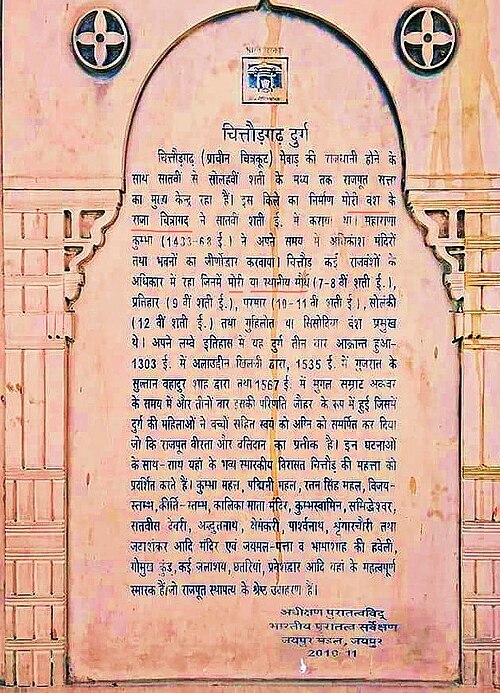 चित्तौड़गढ़ दुर्ग
चित्तौड़गढ़ (प्राचीन चित्रकूट) मेवाड़ की राजधानी होने के
साथ सातवीं से सोलहवीं शती के मध्य तक राजपूत सत्ता
का मुख्य केन्द्र रहा है। इस किले का निर्माण मोरी वंश के
राजा चित्रांगद ने सातवीं शती ई. में कराया था। महाराणा
कुम्भा (1433-68 ई.) ने अपने समय में अधिकांश मंदिरों
तथा भवनों का जीर्णोद्धार करवाया। चित्तौड़ कई राजवंशों के
अधिकार में रहा जिनमें मोरी या स्थानीय मौर्य (7-8 वीं शती ई.),
प्रतिहार (9 वीं शती ई.), परमार (10-11 वीं शती ई.), सोलंकी
(12 वीं शती ई.) तथा गुहिलोत या सिसोदिया वंश प्रमुख
थे। अपने लम्बे इतिहास में यह दुर्ग तीन बार आक्रान्त हुआ-
1303 ई. में अलाउद्दीन खिलजी द्वारा, 1535 ई. में गुजरात के
सुल्तान बहादुर शाह द्वारा तथा 1567 ई. में मुगल सम्राट अकबर
के समय में और तीनों बार इसकी परिणति जौहर के रूप में हुई जिसमें
दुर्ग की महिलाओं ने बच्चों सहित स्वयं को अग्नि को समर्पित कर दिया
जो कि राजपूत वीरता और बलिदान का प्रतीक है। इन घटनाओं
के साथ-साथ यहां के भव्य स्मारकीय विरासत चित्तौड़ की महत्ता को
प्रदर्शित करते हैं। कुम्भा महल, पद्मिनी महल, रतन सिंह महल, विजय-
स्तम्भ, कीर्ति-स्तम्भ, कालिका माता मंदिर, कुम्भस्वामिन, समिद्धेश्वर,
सतवीस देवरी, अद्भुतनाथ, क्षेमंकरी, पार्श्वनाथ, श्रृंगारचौरी तथा
जटाशंकर आदि मंदिर एवं जयमल-पत्ता व भामाशाह की हवेली,
गौमुख कुंड, कई जलाशय, छतरियां, प्रवेशद्वार आदि यहां के महत्वपूर्ण
स्मारक हैं।जो राजपूत स्थापत्य के श्रेष्ठ उदाहरण हैं।
अधीक्षण पुरातत्वविद्
भारतीय पुरातत्व सर्वेक्षण
जयपुर मंडल, जयपुर
2010-11